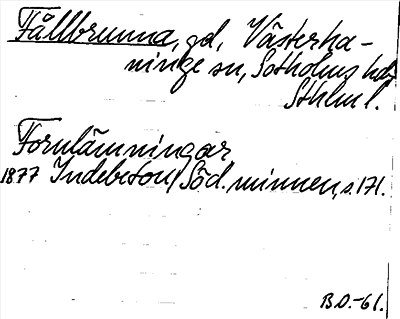 Fållbrunna, gd, Västerha-
ninge sn, Sotholms hd
Sthlm l.
Fornlämningar
1877 Indebetou, Söd. minnen, s. 171.
B.D.-61.